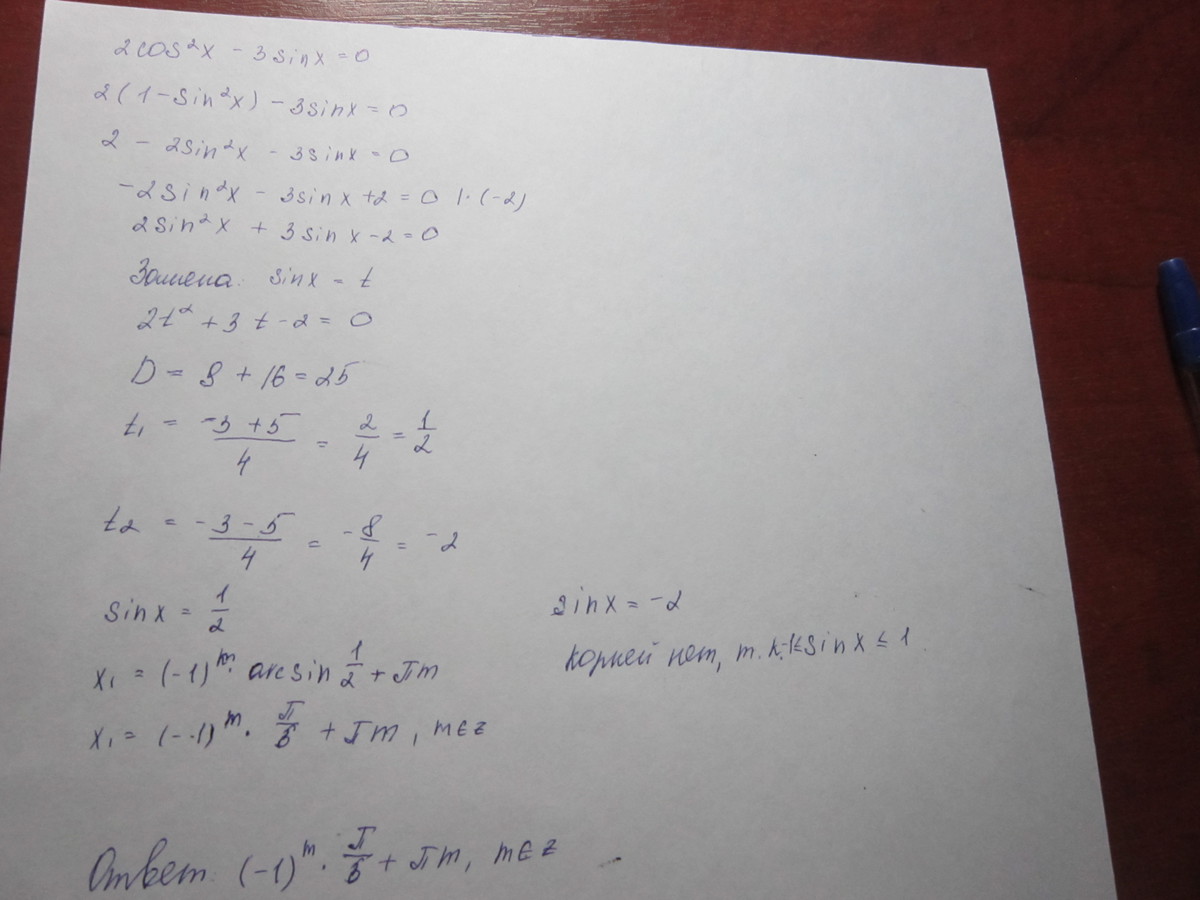 2cos²x - 3sinx = 0
2(1-sin²x) - 3sinx = 0
2 - 2sin²x - 3sinx = 0
-2sin²x - 3sinx + 2 = 0 |·(-2)
2sin²x + 3sinx - 2 = 0
Замена: sinx = t
2t² + 3t - 2 = 0
D = 9 + 16 = 25
t₁ = (-3+5)/4 = 2/4 = 1/2
t₂ = (-3-5)/4 = -8/4 = -2
sinx = 1/2
x₁ = (-1)ᵐ· arcsin 1/2 + πm
x₁ = (-1)ᵐ· π/6 + πm, m∈z
sinx = -2
корней нет, т.к. -1≤sinx≤1.
Ответ: (-1)ᵐ· π/6 + πm, m∈z